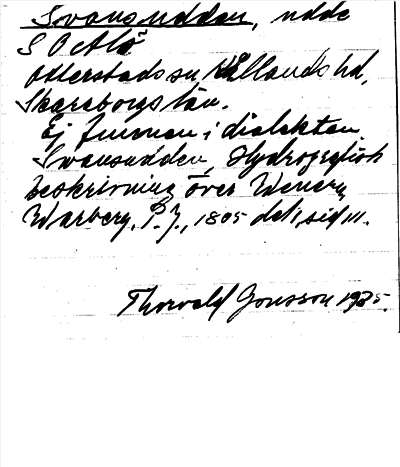 Svansudden, udde
S Ocklö
Otterstads sn Kållands hd,
Skaraborgs län.
Ej funnen i dialekten.
Svansudden, Hydrografisk
beskrivning över Wenern,
Warberg, P. J., 1805 del 1, sid III.
Thorvald Jonsson 1935.